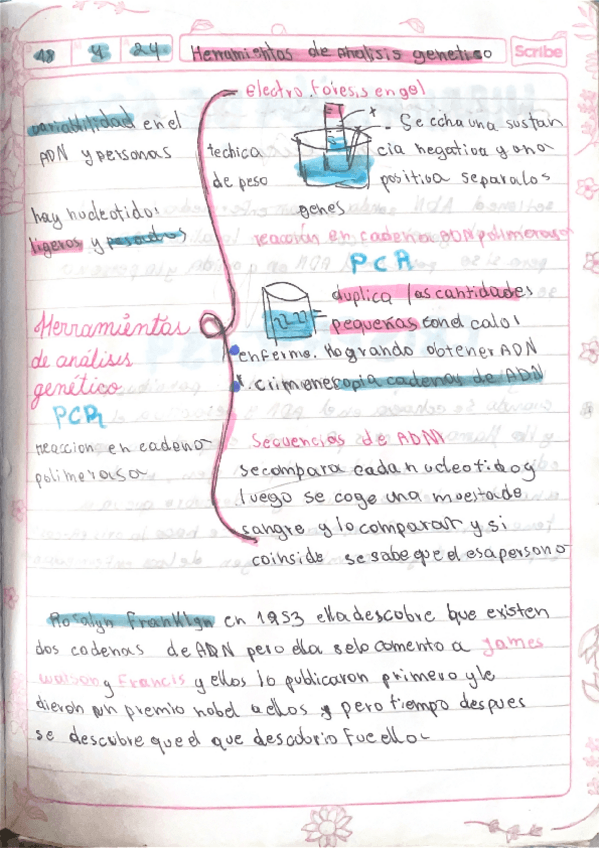 18 4 24 Herramientas de analisis genetico Scribe
electroforesis en gel
variablilidad en el
ADN y personas
hay nucleotidos
ligeros y pesados
techica
de peso
+
- Se echa una sustan
cia negativa y una
positiva separa los
genes
reacción en cadena ADN polimerasa
PCR
duplica las cantidades
pequeñas con el calor
enfermo. logrando obtener ADN
crimenes copia cadenas de ADN
Herramientas
de análisis
genético
PCR
reaccion en cadena
polimerasa
Secuencias de ADN
se compara cada nucleotido y
luego se coge una muestra de
sangre y lo comparar y si
coinside se sabe que el esa persona
Rosalyn Franklyn en 1953 ella descobre que existen
dos cadenas de ADN pero ella se lo comento a james
watson y Francis y ellos lo publicaron primero y le
dieron un premio nobel a ellos y pero tiempo despues
se descubre que el que descubrio fue ella